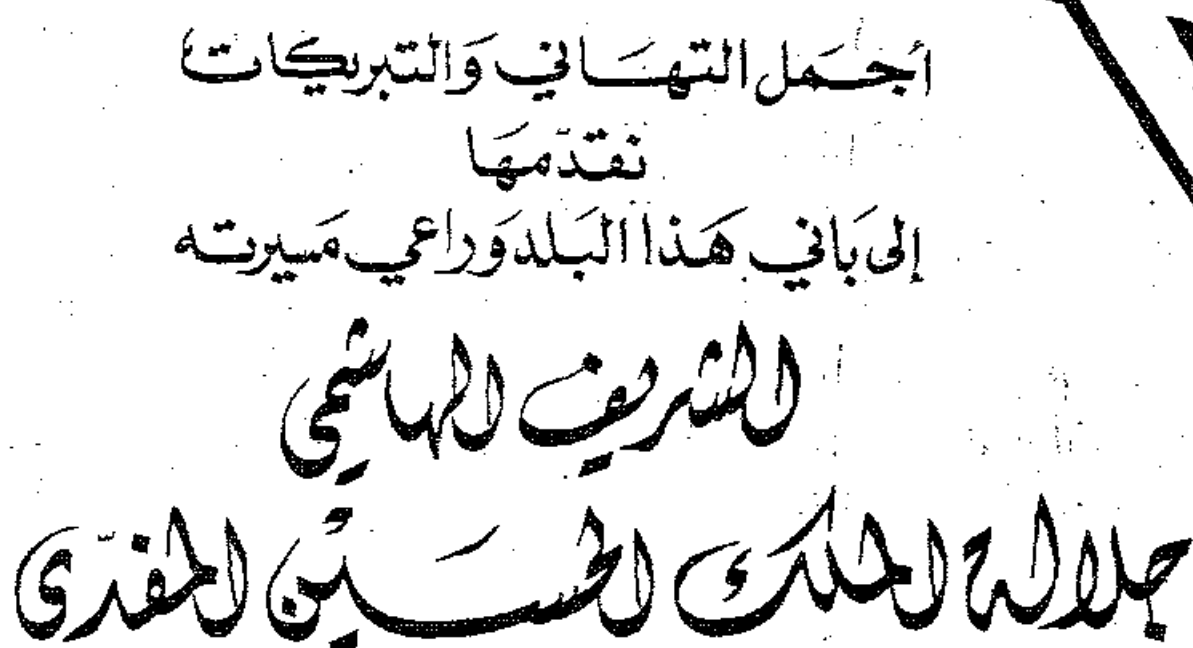 أجمل التهاني والتبريكات
نقدّمها
إلى باني هذا البلد وراعي مسيرته
الشريف الهاشمي
جلالة الملك الحسين المفدّى